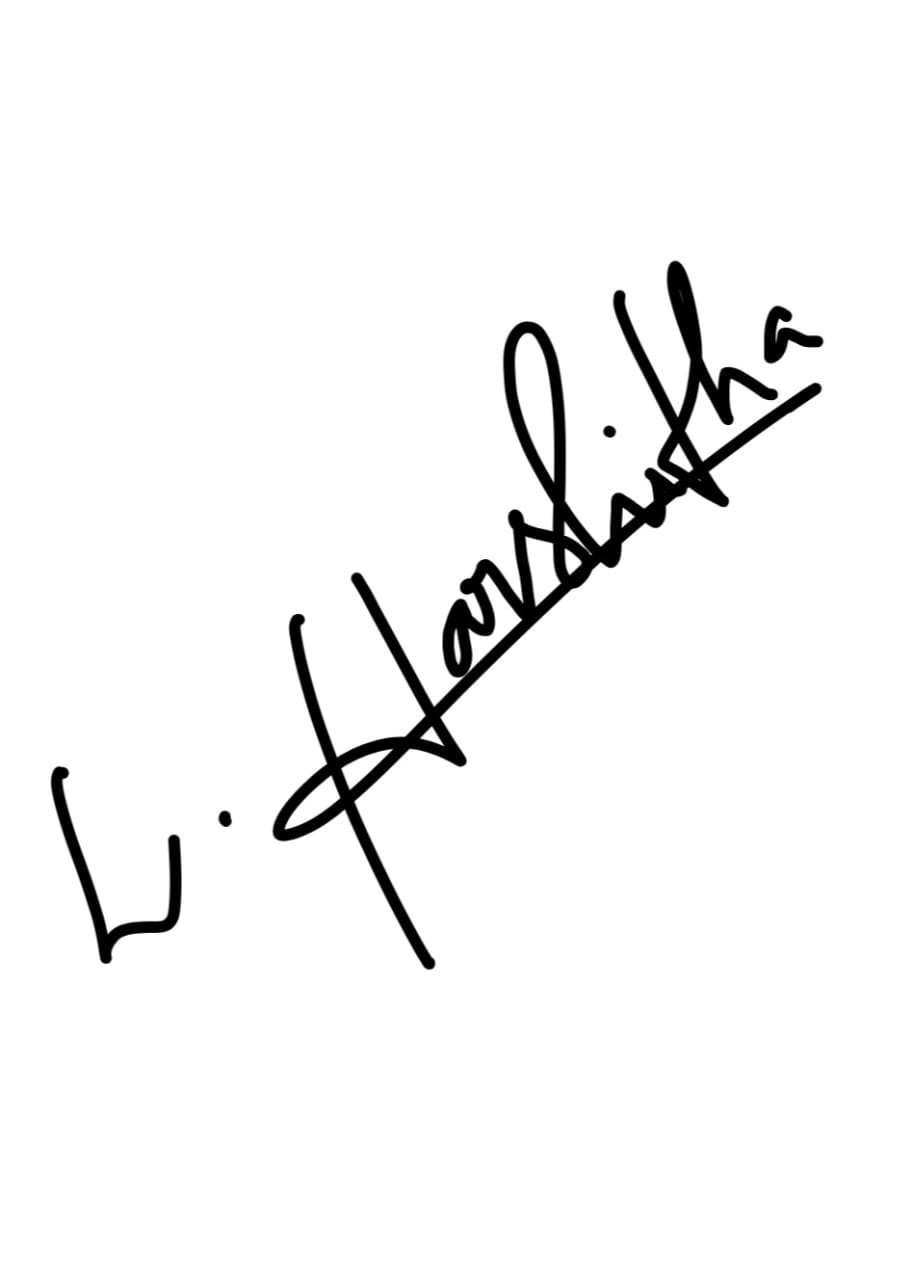 L. Harshitha